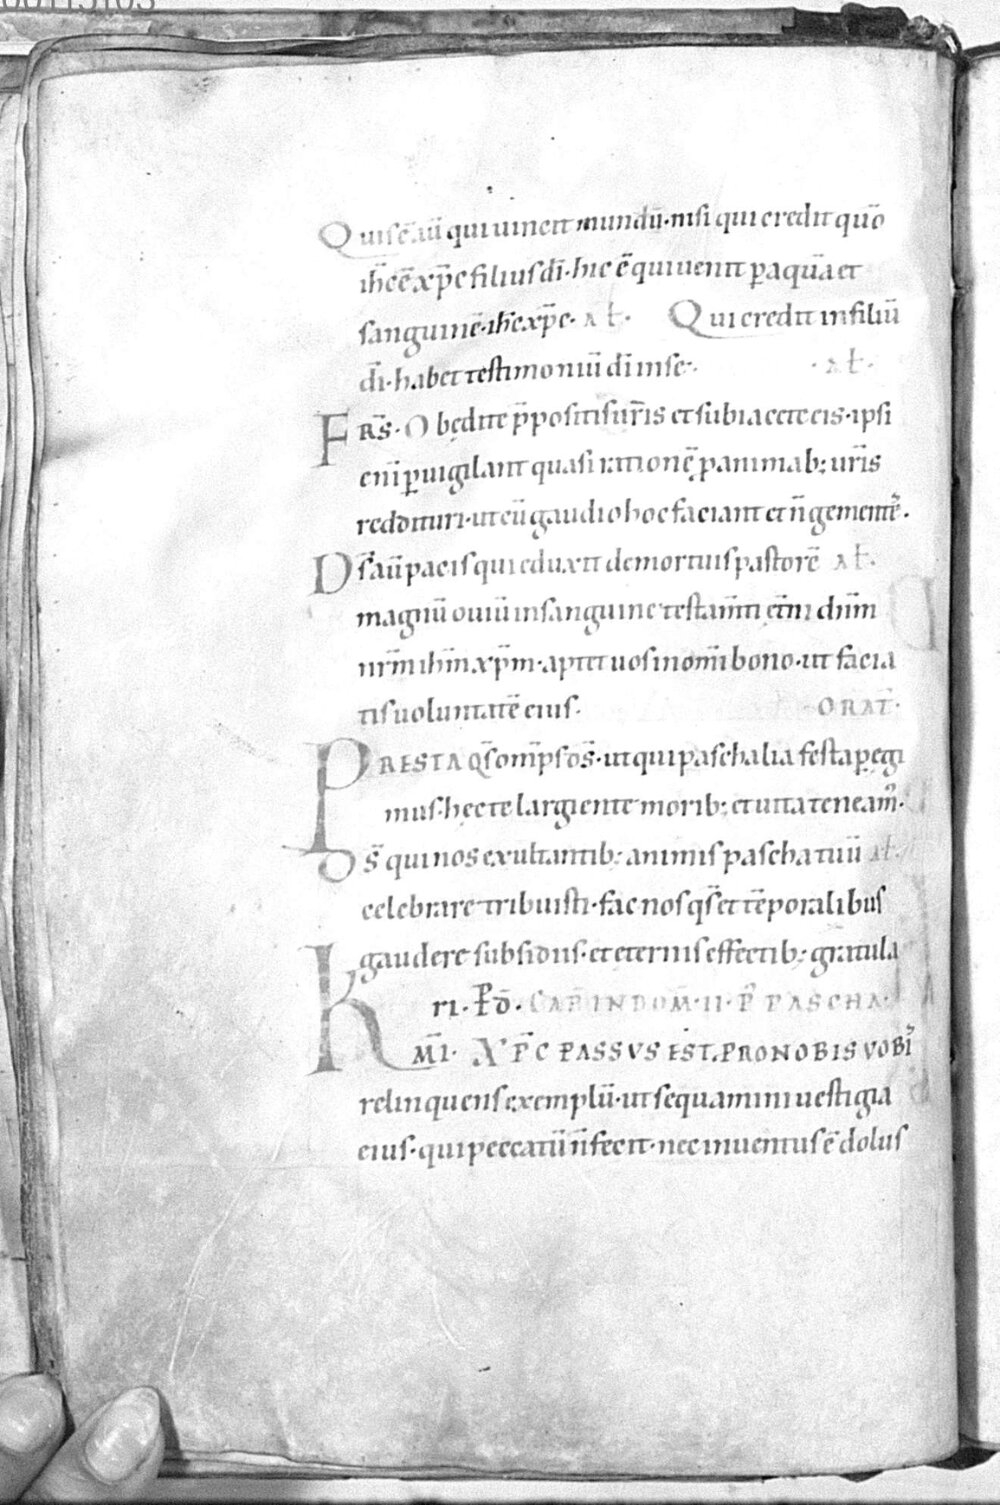 Quis ē aū qui uincit mundū· nisi qui credit quō
ih̄c ē xp̄c filius dī· hic ē qui uenit p̄ aquā et
sanguinē· ih̄c xp̄c· al̄· Qui credit in filiū
dī· habet testimoniū dī in se·
·al̄·
FRS̄· Obędite p̄positis ur̄is et subiacete eis· ipsi
eni̅ p̄uigilant quasi rationę̄ p̄ animab; ur̄is
reddituri· ut cū gaudio hoc faciant et n̄ gementes·
Ds̄ aū pacis qui eduxit de mortuis pastorē al̄·
magnū ouiū in sanguine testam̄ti et̄ni dn̄m
nr̄m ih̄m xp̄m· aptet uos in om̄i bono· ut facia
tis uoluntatē eius·
ORAT̄·
PRESTA QS̄ om̄ps ds̄· ut qui paschalia festa p̄egi
mus· hęc te largiente morib; et uita teneam̄·
Ds̄ qui nos exultantib; animis pascha tuū al̄·
celebrare tribuisti· fac nos qs̄ et tēporalibus
gaudere subsidiis· et eternis effectib; gratula
ri· P̄ D̄· CAP̄ IN DOM̄· II· P̄ PASCHA·
KM̄I· XP̄C PASSVS EST PRO NOBIS VOBI
relinquens exemplū· ut sequamini uestigia
eius· qui peccatū n̄ fecit· nec inuentus ē dolus